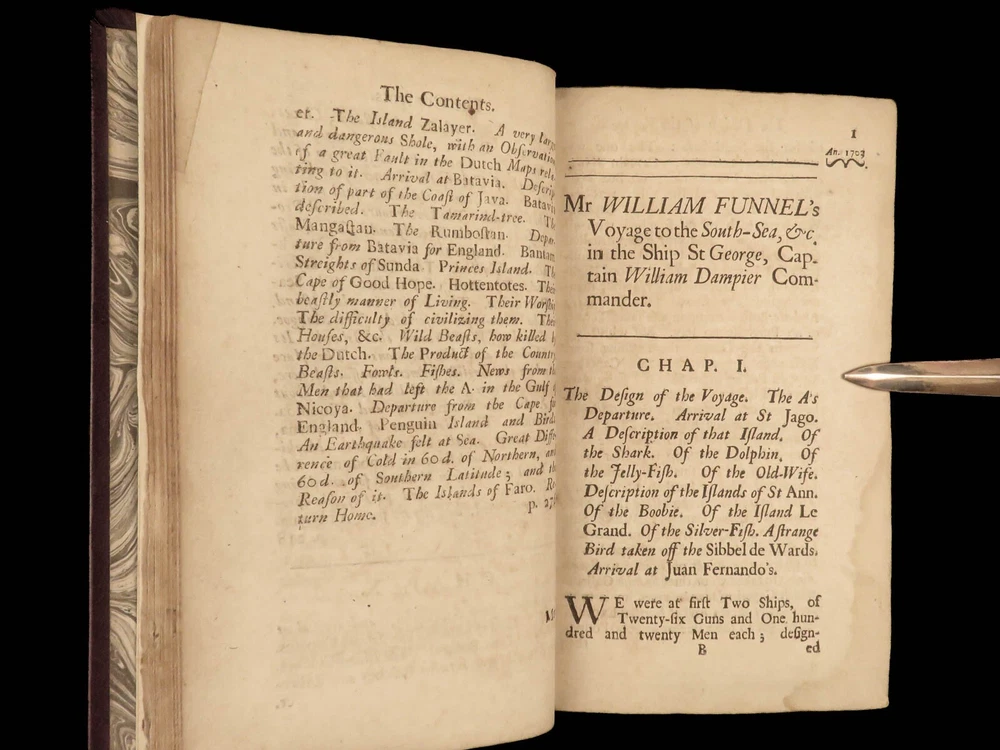 The Contents.
er. The Island Zalayer. A very
and dangerous Shole, with an
of a great Fault in the Dutch Maps
ting to it. Arrival at Batavia.
tion of part of the Coaſt of Java.
deſcribed. The Tamarind-tree.
Mangaſtan. The Rumboſtan.
ture from Batavia for England.
Streights of Sunda. Princes Iſland.
Cape of Good Hope. Hottentotes.
beaſtly manner of Living. Their
The difficulty of civilizing them.
Houſes, &c. Wild Beaſts, how killed
the Dutch. The Product of the
Beaſts. Fowls. Fiſhes. News from
Men that had left the A. in the Gulf
Nicoya. Departure from the Cape
England. Penguin Iſland and
An Earthquake felt at Sea. Great
rence of Cold in 60 d. of Northern,
60 d. of Southern Latitude; and
Reaſon of it. The Iſlands of Faro.
turn Home. p.
1
An. 1703
Mr WILLIAM FUNNEL's
Voyage to the South-Sea, &c.
in the Ship St George, Cap-
tain William Dampier Com-
mander.
CHAP. I.
The Deſign of the Voyage. The A's
Departure. Arrival at St Jago.
A Deſcription of that Iſland. Of
the Shark. Of the Dolphin. Of
the Jelly-Fiſh. Of the Old-Wife.
Deſcription of the Iſlands of St Ann.
Of the Boobie. Of the Iſland Le
Grand. Of the Silver-Fiſh. A ſtrange
Bird taken off the Sibbel de Wards.
Arrival at Juan Fernando's.
WE were at firſt Two Ships, of
Twenty-ſix Guns and One hun-
dred and twenty Men each; deſign-
B ed